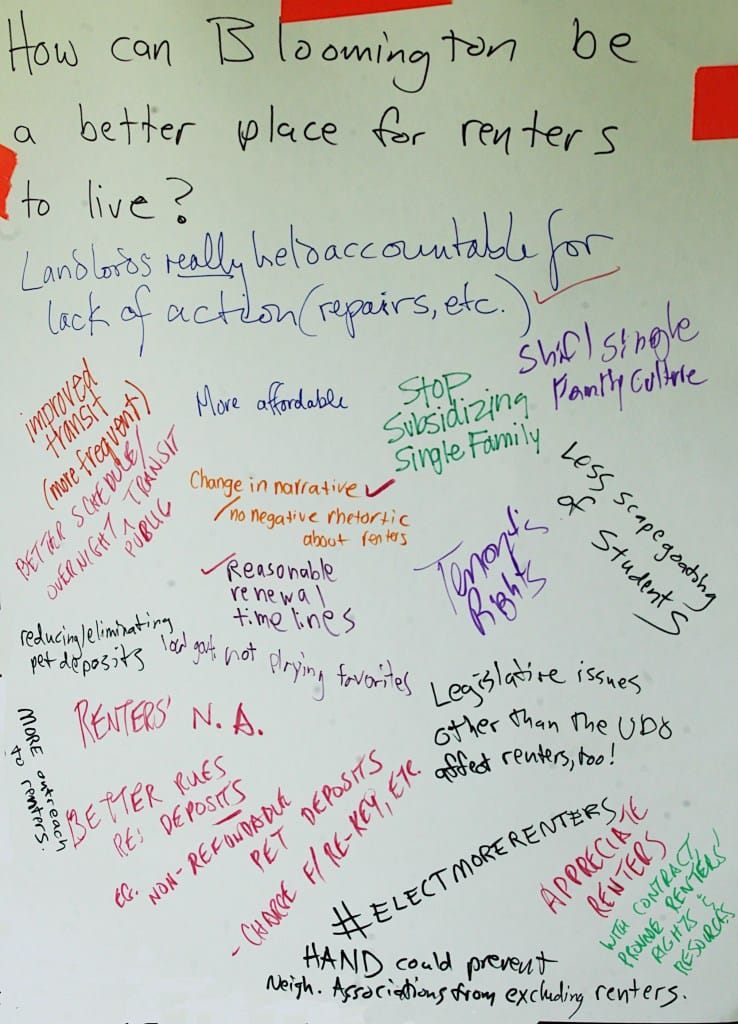 How can Bloomington be
a better place for renters
to live?
Landlords really held accountable for
lack of action (repairs, etc.)
Shift Single
Family Culture
improved
transit
(more frequent)
More affordable
Stop
Subsidizing
Single Family
BETTER SCHEDULE/
OVERNIGHT ^ TRANSIT
PUBLIC
Change in narrative
/no negative rhetortic
about renters
Less scapegoating
of Students
Reasonable
renewal
timelines
Tenants
Rights
reducing/eliminating
pet deposits
local govt. not playing favorites
Legislative issues
other than the UDO
affect renters, too!
RENTERS' N.A.
MORE outreach
to renters.
BETTER RULES
RE: DEPOSITS
EG. NON-REFUNDABLE
PET DEPOSITS
- CHARGE F/ RE-KEY, ETC.
#ELECTMORERENTERS
APPRECIATE
RENTERS
WITH CONTRACT
PROVIDE RENTERS'
RIGHTS &
RESOURCES
HAND could prevent
Neigh. Associations from excluding renters.